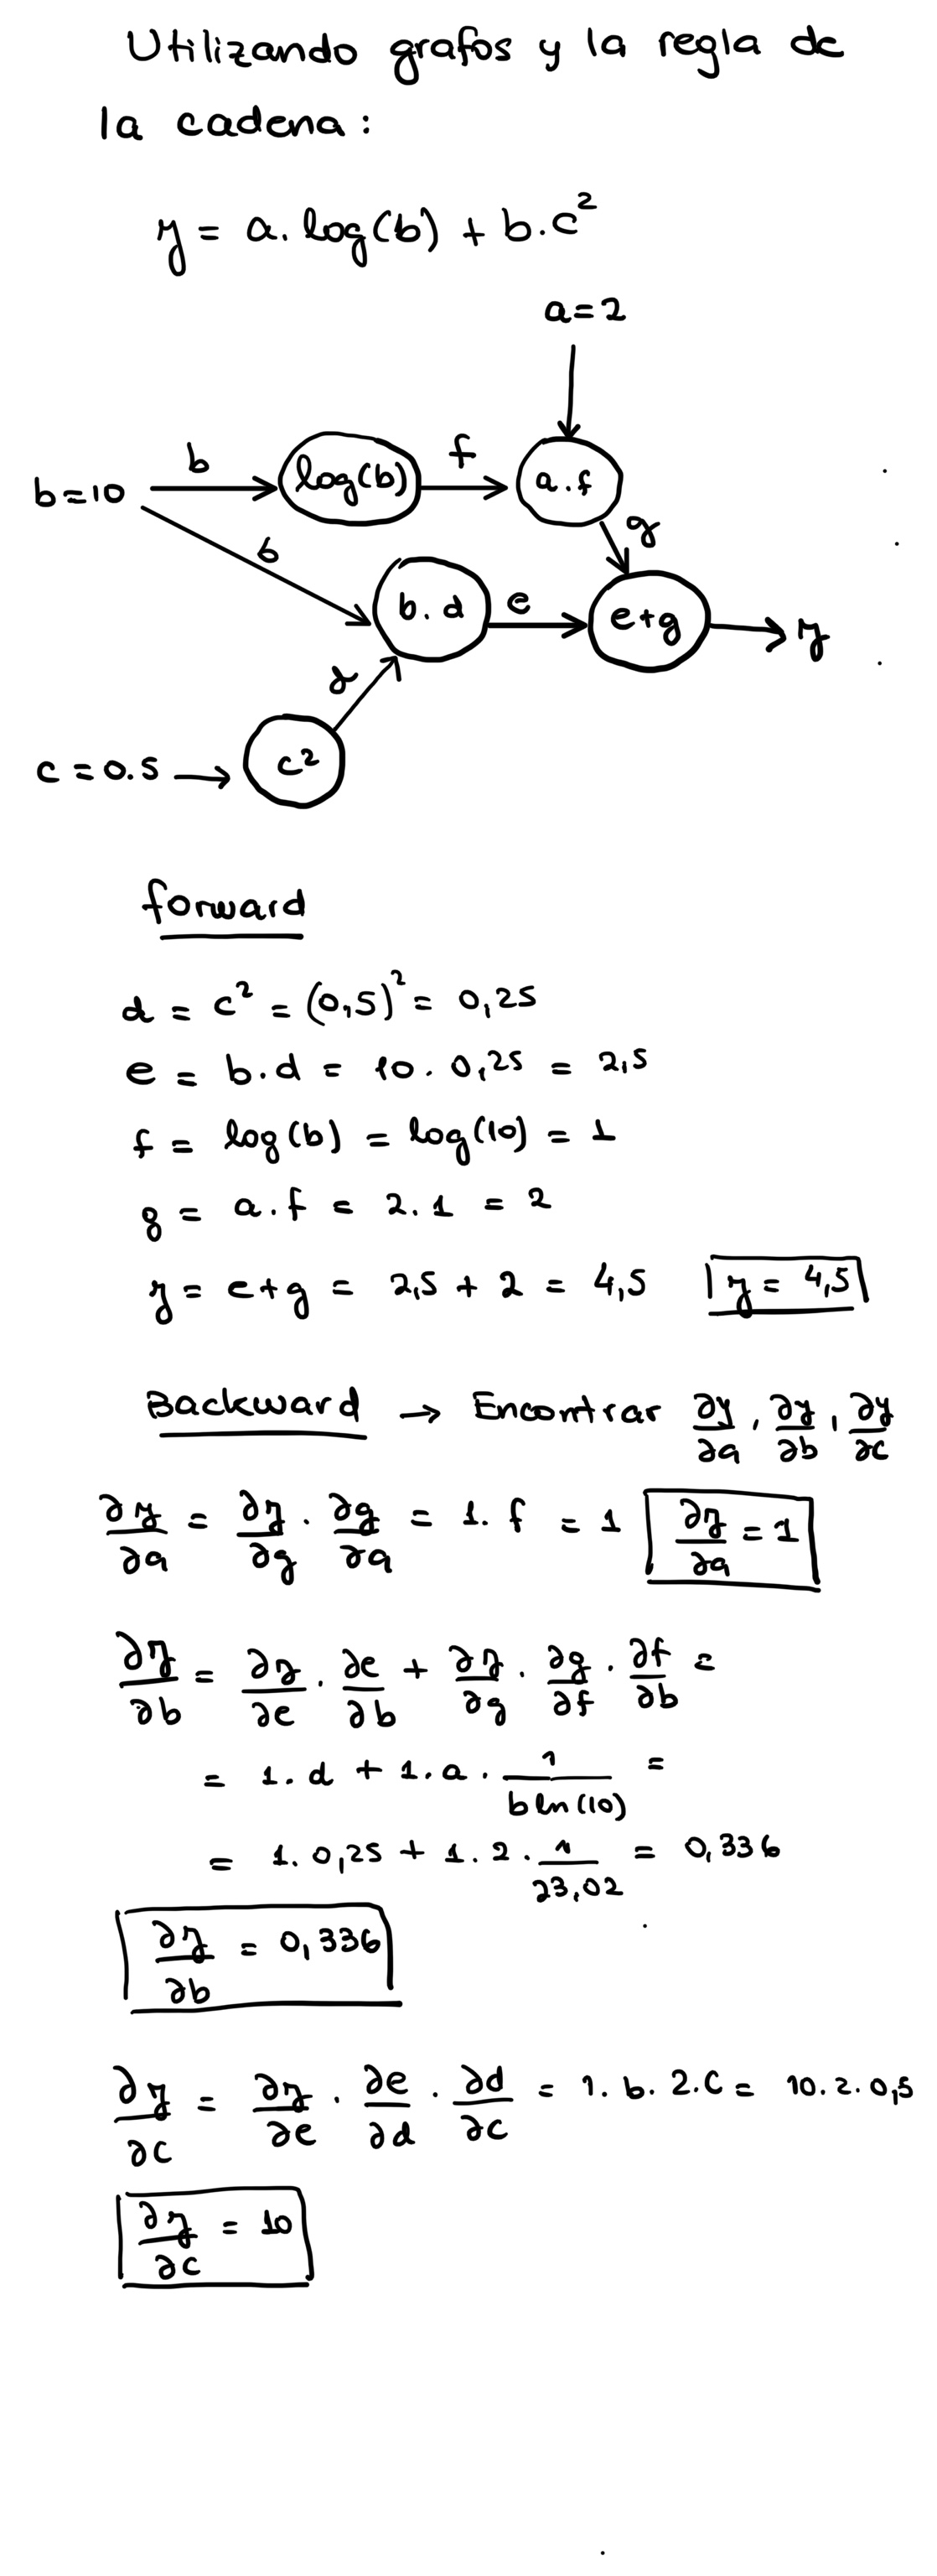 Utilizando grafos y la regla de
la cadena:
y = a. log(b) + b.c²
a=2
b
f
b=10
log(b)
a.f
g
b
b.d
e
e+g
y
d
c = 0.5
c²
forward
d = c² = (0,5)² = 0,25
e = b.d = 10. 0,25 = 2,5
f = log(b) = log(10) = 1
g = a.f = 2.1 = 2
y = e+g = 2,5 + 2 = 4,5 y = 4,5
Backward → Encontrar ∂y/∂a, ∂y/∂b, ∂y/∂c
∂y/∂a = ∂y/∂g . ∂g/∂a = 1. f = 1 ∂y/∂a = 1
∂y/∂b = ∂y/∂e . ∂e/∂b + ∂y/∂g . ∂g/∂f . ∂f/∂b =
= 1. d + 1. a . 1/b ln(10) =
= 1. 0,25 + 1. 2 . 1/23,02 = 0,336
∂y/∂b = 0,336
∂y/∂c = ∂y/∂e . ∂e/∂d . ∂d/∂c = 1. b. 2.c = 10. 2. 0,5
∂y/∂c = 10